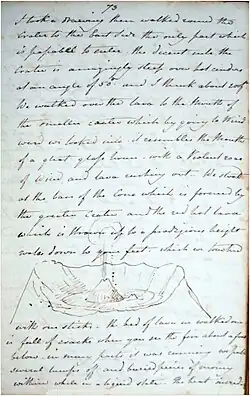 73
I took a drawing then walked round the
Crater to the East side the only part which
is possible to enter. the descent into the
Crater is amazingly steep over hot cinders
at an angle of 50° and I think about 200 f
We walked over the lava to the Mouth of
the smaller crater which by going to Wind
ward we looked into it resembles the Mouth
of a great glass house with a Violent roar
of Wind and lava rushing out. We stood
at the base of the Cone which is formed by
the greater crater and the red hot lava
which is thrown up to a prodigious height
rolls down to your feet which we touched
with our sticks - the bed of lava we walked on
is full of cracks when you see the fire about a foot
below in many parts it was running we pulled
several lumps off and buried pieces of money
within while in a liquid state. the heat